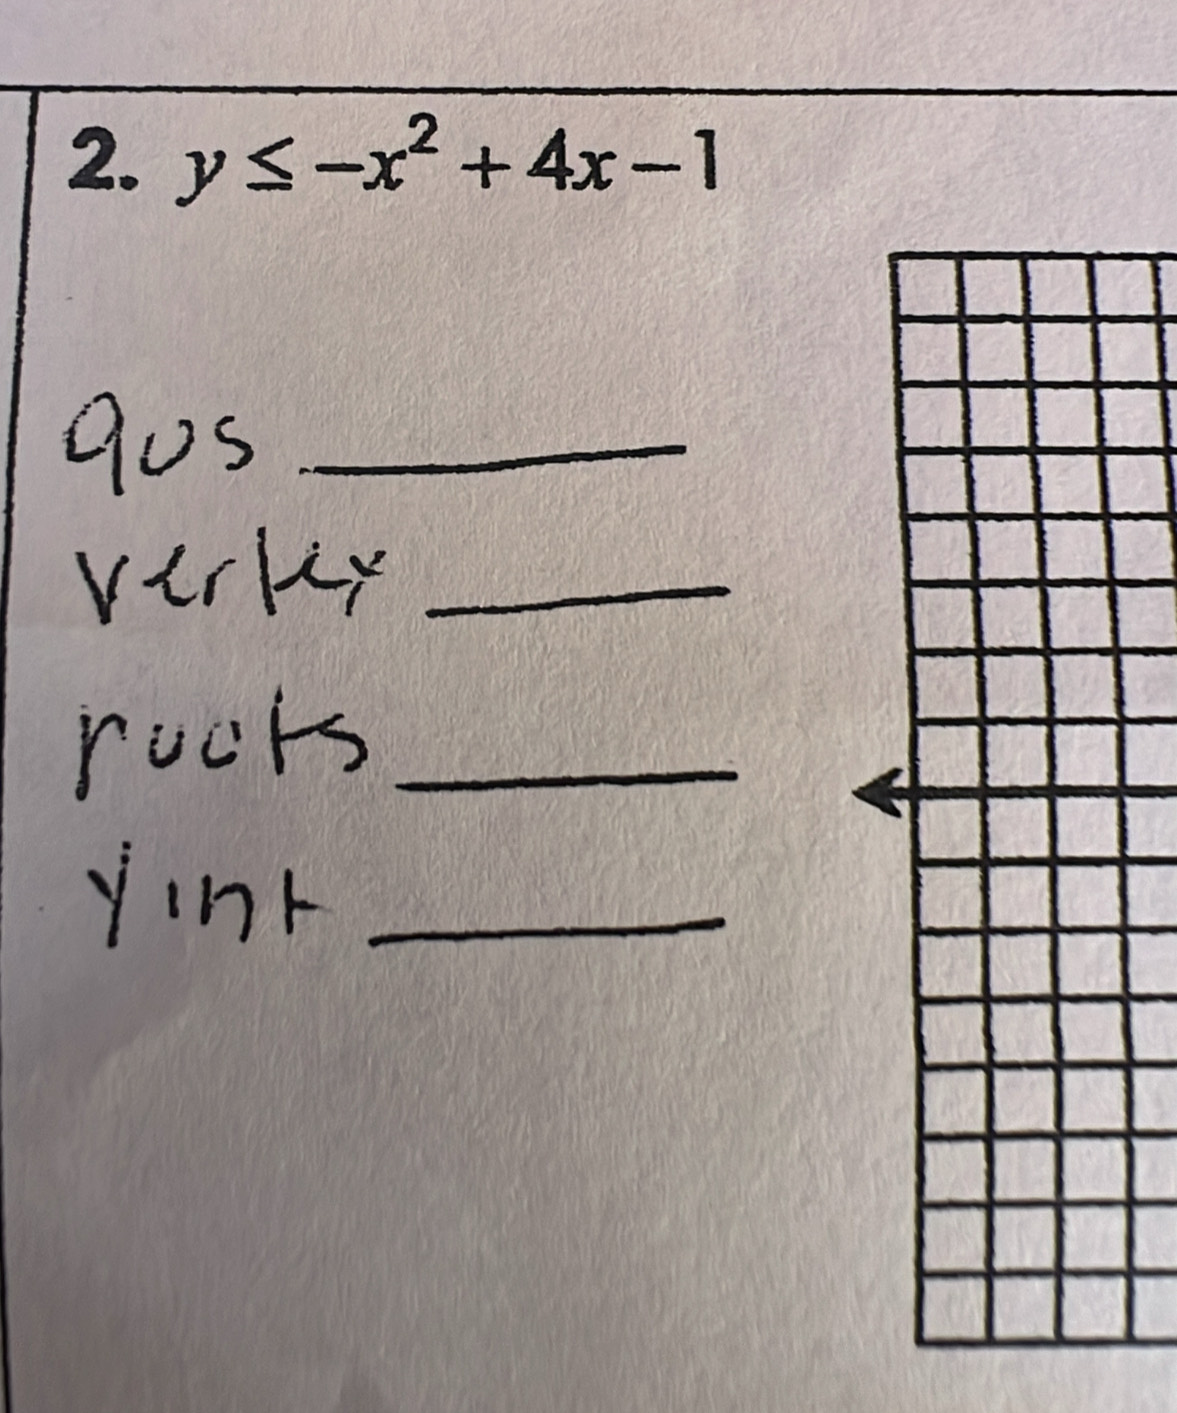 2. y ≤ -x² + 4x - 1
aos
vertex
roots
y int